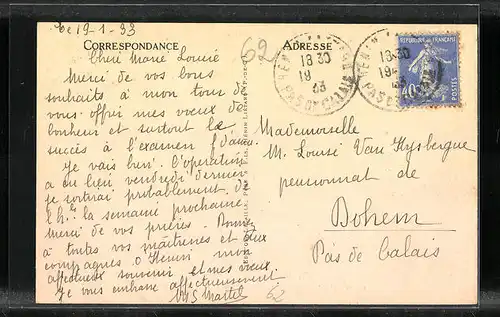 Le 19-1-33
CORRESPONDANCE
Chère Marie Louise
Merci de vos bons
souhaits à mon tour de
vous offrir mes voeux de
bonheur et surtout le
succès à l'examen
Je vais bien. L'opération
a eu lieu vendredi dernier
je sortirai probablement de
la semaine prochaine
Merci de vos prières.
à toutes vos maîtresses et
compagnes mon
affectueux souvenir et mes voeux
Je vous embrasse affectueusement
62
ADRESSE
18 30
19
33
PAS DE CALAIS
18 30
PAS DE CALAIS
REPUBLIQUE FRANÇAISE
40
POSTES
Mademoiselle
M. Louise Van
pensionnat de
Bohem
Pas de Calais
62